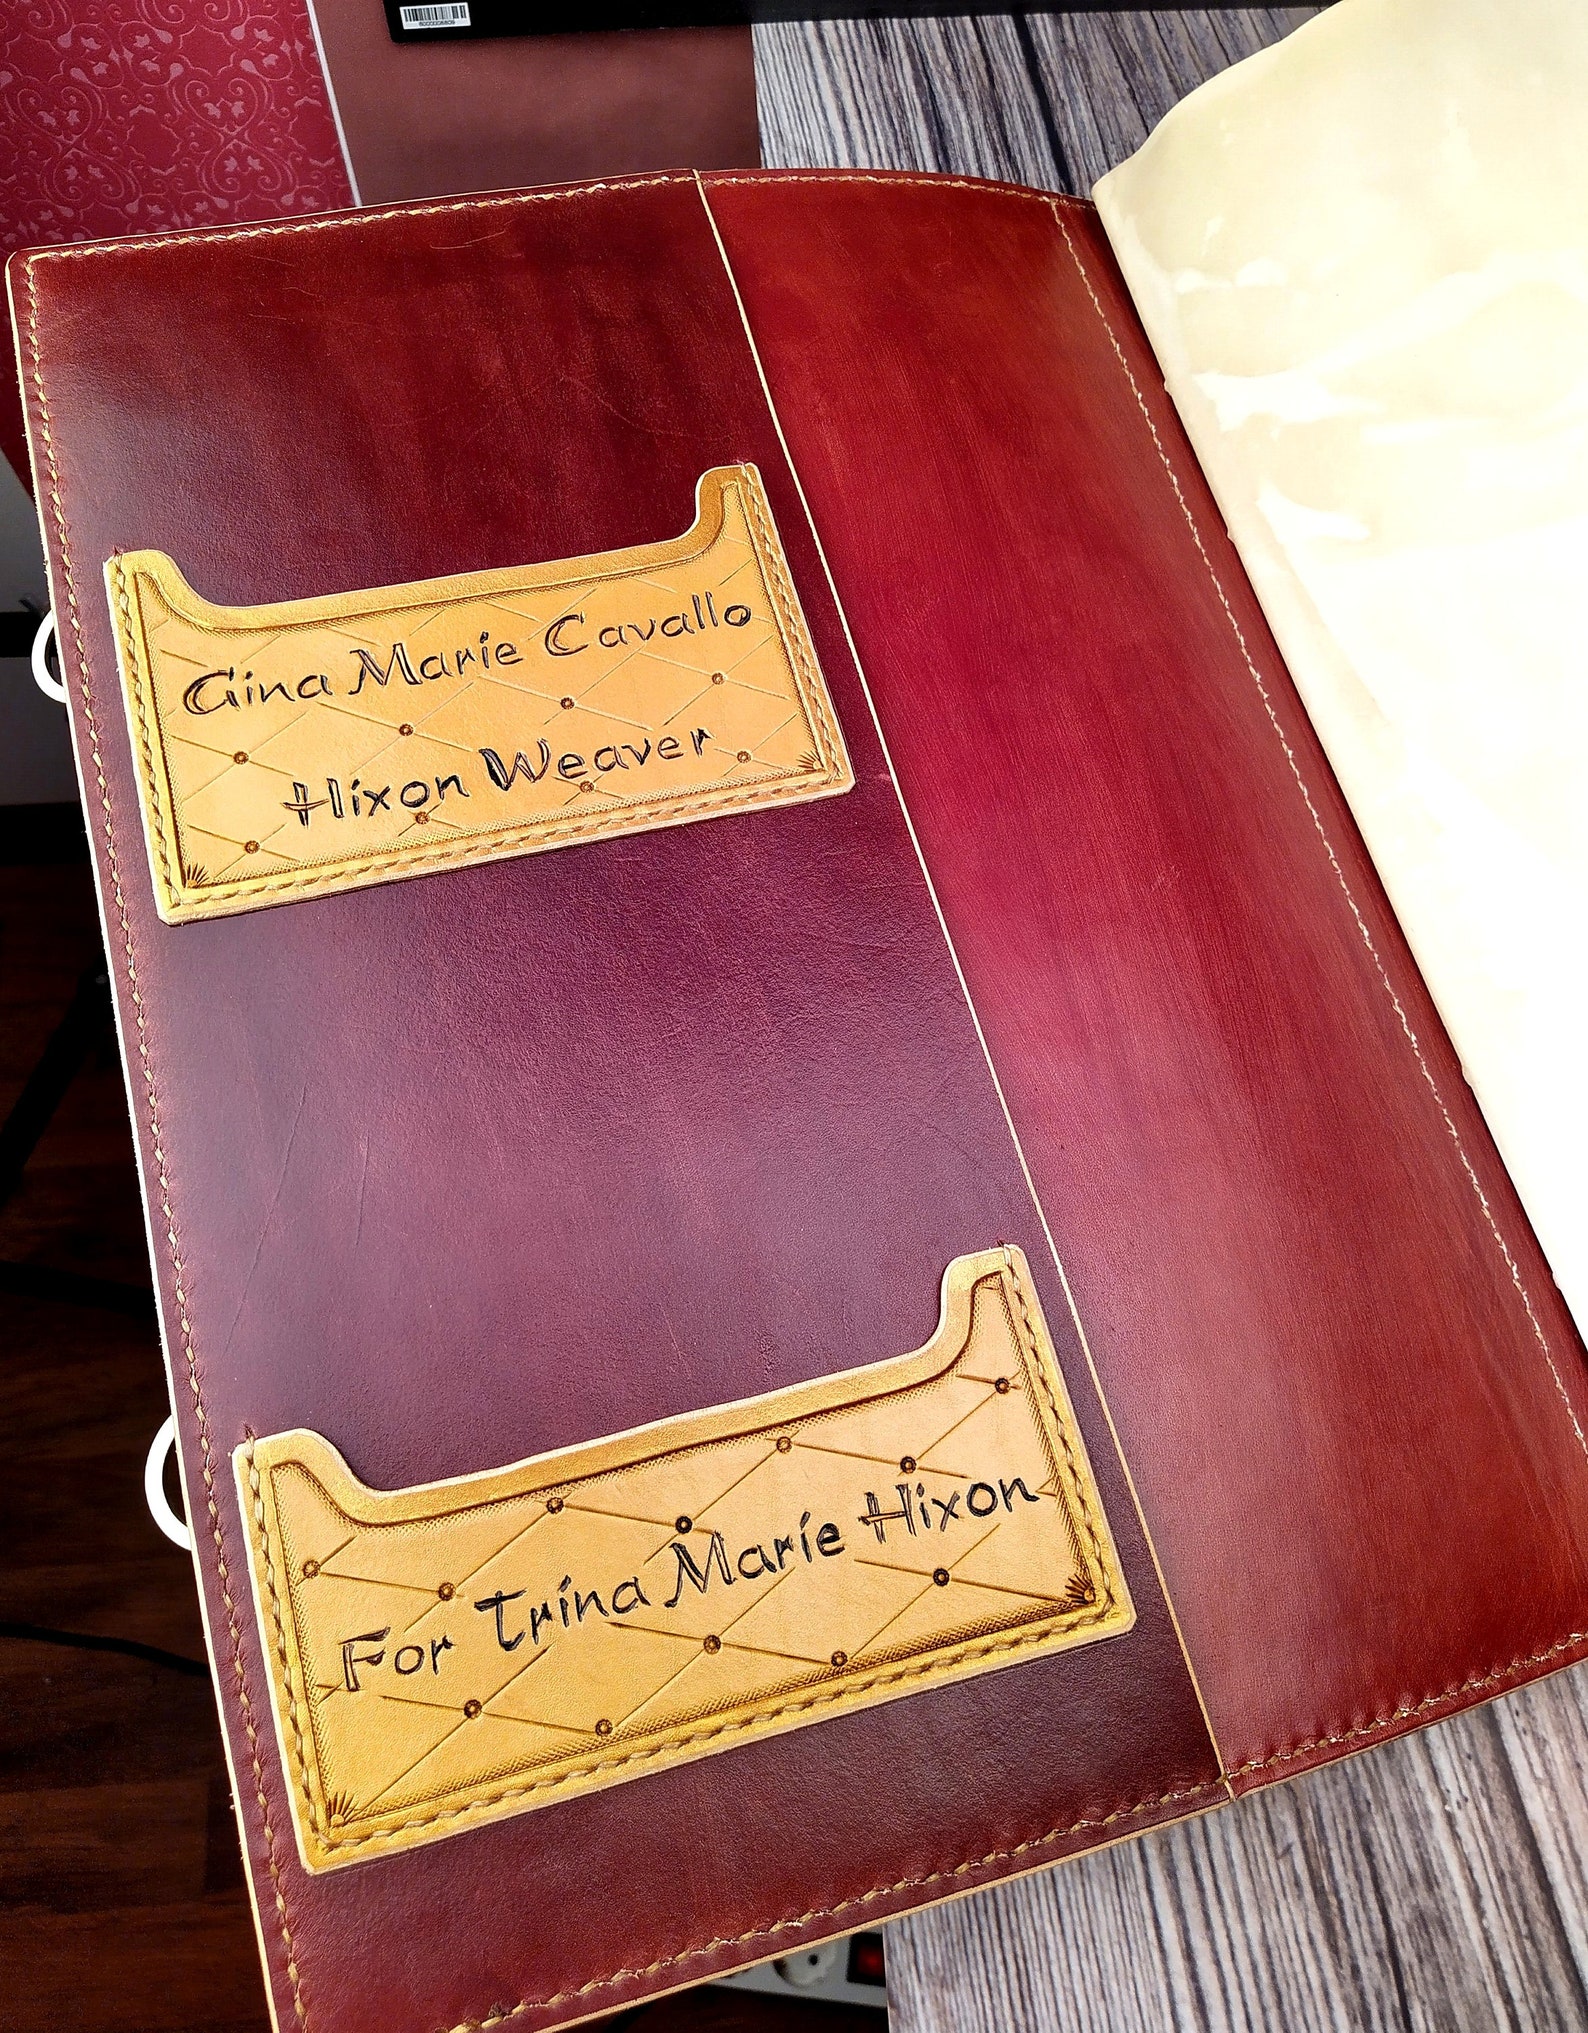 Gina Marie Cavallo
Hixon Weaver
For Trina Marie Hixon